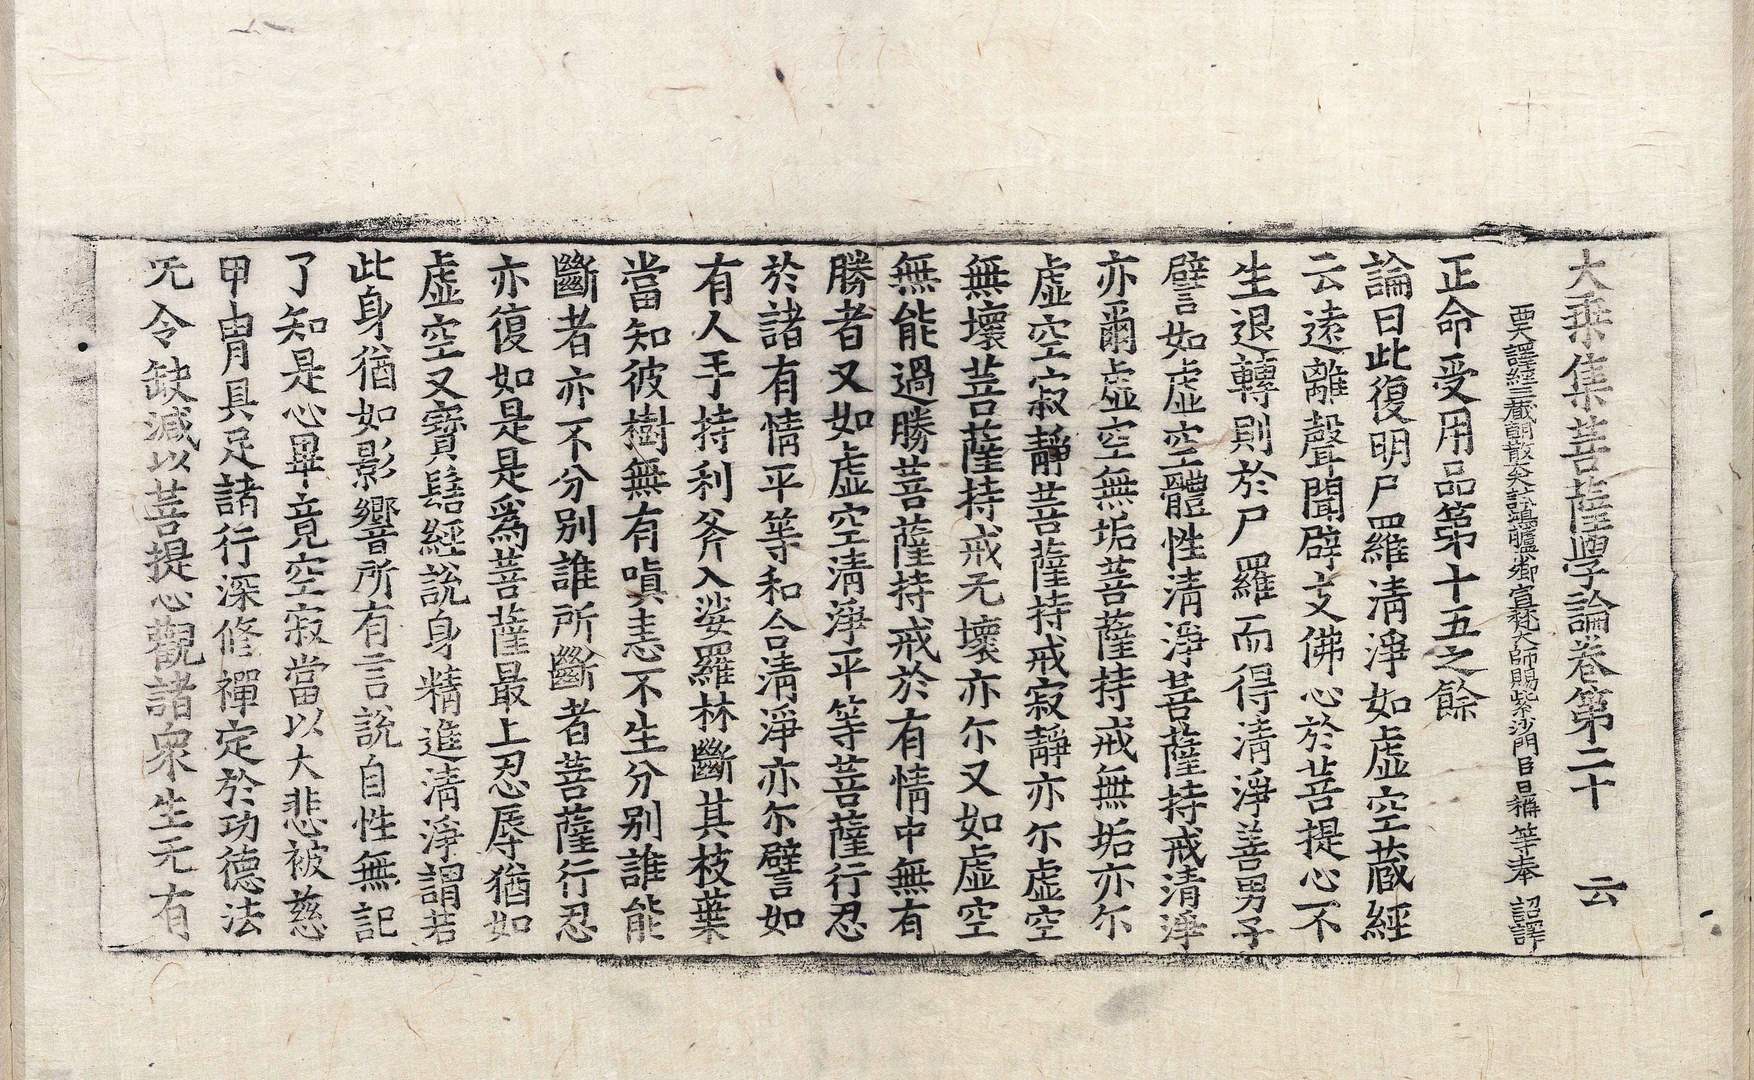 大乘集菩薩學論卷第二十 云
西天譯經三藏朝散大夫試鴻臚少卿宣梵大師賜紫沙門臣日稱等奉 詔譯
正命受用品第十五之餘
論曰此復明尸羅清淨如虛空藏經
云遠離聲聞辟支佛心於菩提心不
生退轉則於尸羅而得清淨善男子
譬如虛空體性清淨菩薩持戒清淨
亦爾虛空無垢菩薩持戒無垢亦尓
虛空寂靜菩薩持戒寂靜亦尓虛空
無壞菩薩持戒无壞亦尓又如虛空
無能過勝菩薩持戒於有情中無有
勝者又如虛空清淨平等菩薩行忍
於諸有情平等和合清淨亦尓譬如
有人手持利斧入娑羅林斷其枝葉
當知彼樹無有嗔恚不生分別誰能
斷者亦不分別誰所斷者菩薩行忍
亦復如是是爲菩薩最上忍辱猶如
虛空又寶髻經說身精進清淨謂若
此身猶如影響所有言說自性無記
了知是心畢竟空寂當以大悲被慈
甲冑具足諸行深修禪定於功德法
无令缺減以菩提心觀諸衆生无有